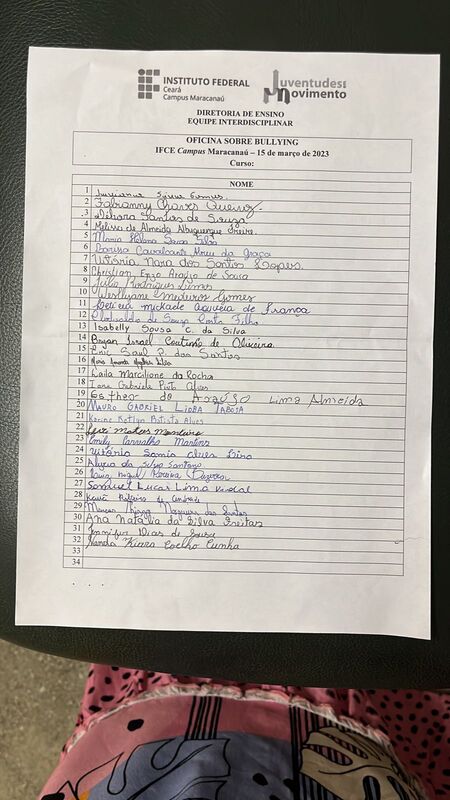 INSTITUTO FEDERAL
Ceará
Campus Maracanaú
Juventudes em
Movimento
DIRETORIA DE ENSINO
EQUIPE INTERDISCIPLINAR
OFICINA SOBRE BULLYING
IFCE Campus Maracanaú – 15 de março de 2023
Curso:
NOME
1 Gomes
2 Fabianny Chaves Queiroz
3 Débora Santos de Souza
4 Melissa de Almeida Albuquerque Freire
5 Maria Helena Sousa Silva
6 Cavalcante Abreu da Graça
7 Vitória Nara dos Santos Lopes
8 Christian Enzo Araújo de Sousa
9 Julia Rodrigues
10 Weslyane Medeiros Gomes
11 de Franca
12 Clodoaldo de Souza Costa Filho
13 Isabelly Sousa C. da Silva
14 Bryan Israel Coutinho de Oliveira
15 Eric Saul P. dos Santos
16 Maria Amanda Silva
17 Laila Marcilione da Rocha
18 Iara Gabriele Pinto Alves
19 Esther de Araújo Lima Almeida
20 MAURO GABRIEL LIOBA TABOSA
21 Karine Ketlyn Batista Alves
22 José Mateus Monteiro
23 Emily Carvalho Martins
24 Vitória Samia Alves Lino
25 Alycia da Silva Santana
26 Miguel Pereira
27 Samuel Lucas Lima
28 Kauã Ribeiro de Andrade
29 Marcos Thiago Nogueira dos Santos
30 Ana Natália da Silva Freitas
31 Jennifer Dias de Sousa
32 Nanda Kiara Coelho Cunha
33
34